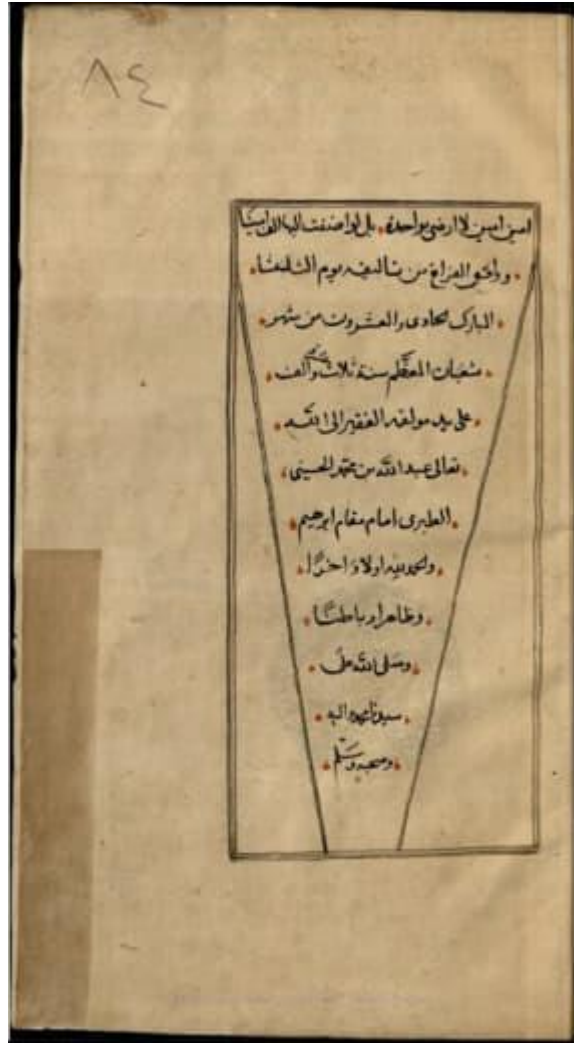 ٨٤
امين امين لا ارضى بواحدة بل لو اضفت اليها الف امينا
ووافق الفراغ من تاليفه يوم الثلثا
المبارك الحادى والعشرون من شهر
شعبان المعظم سنة ثلاث وألف
على يد مولفه الفقير الى الله
تعالى عبد الله من محمد الحسينى
الطبرى امام مقام ابرهيم
والحمد لله اولا وَ اخرًا
وظاهرا وباطنًا
وصلى الله على
سيدنا محمد واله
وصحبه وسلم